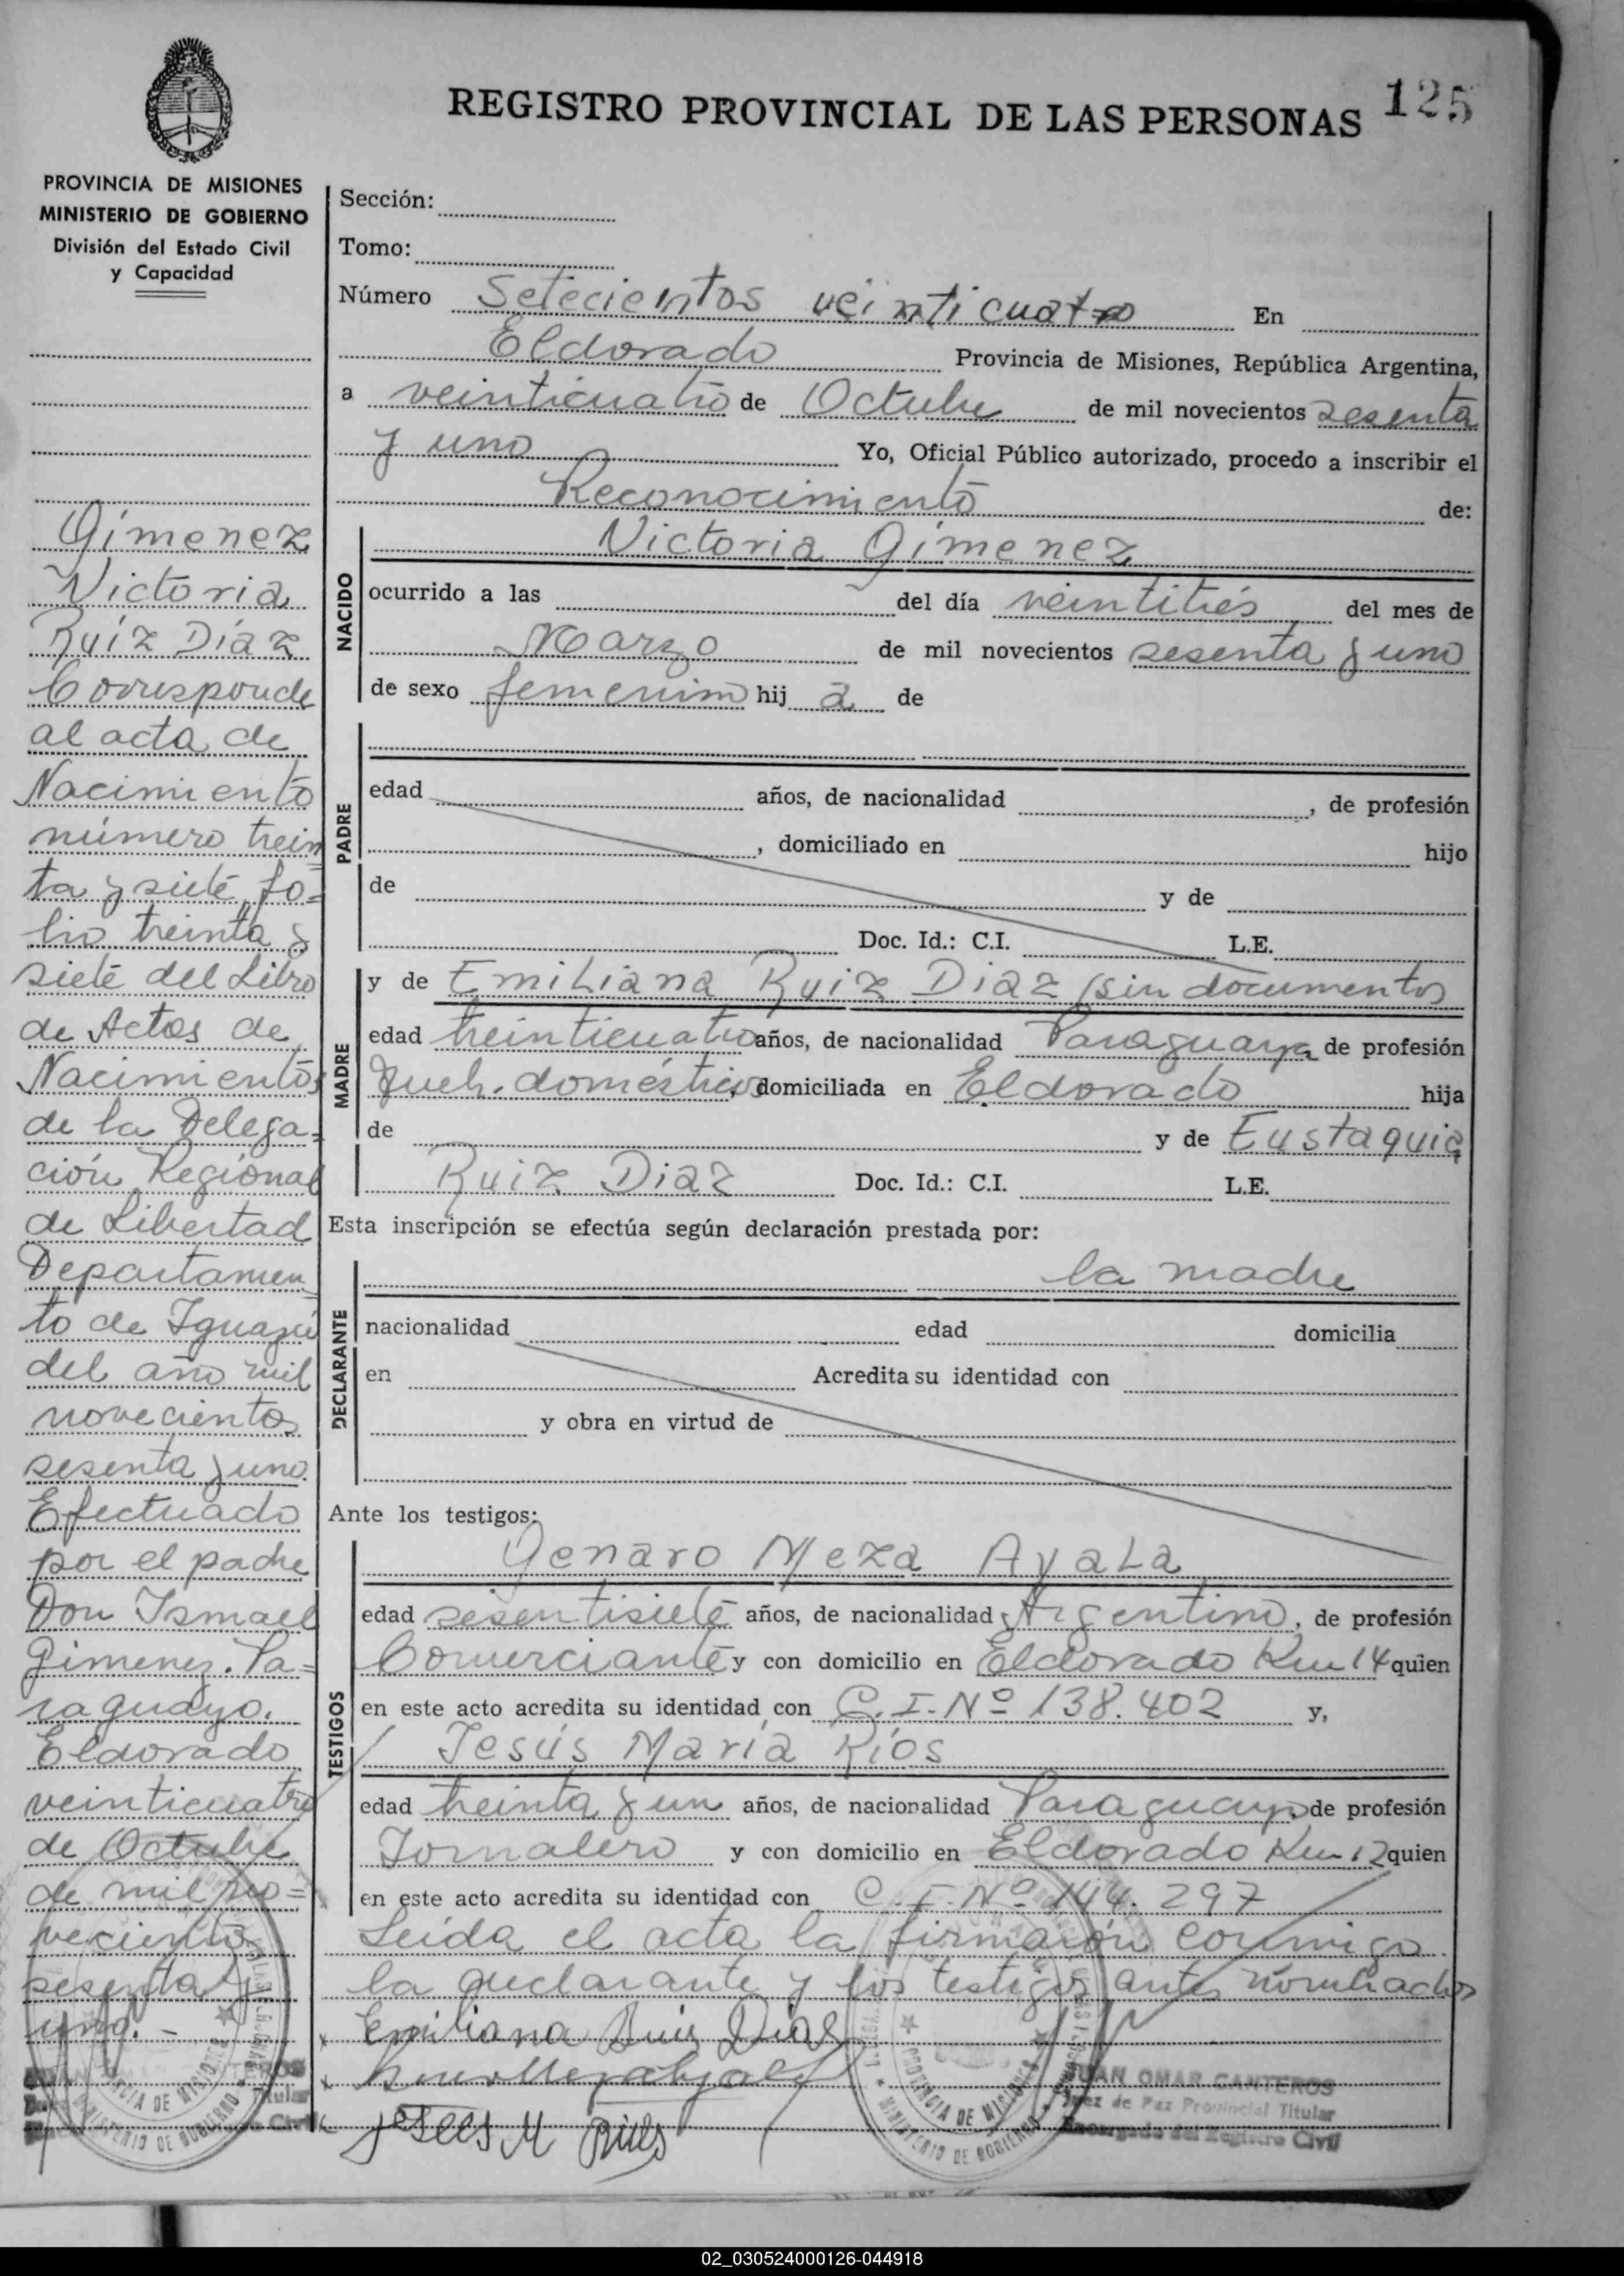 REGISTRO PROVINCIAL DE LAS PERSONAS 125
PROVINCIA DE MISIONES
MINISTERIO DE GOBIERNO
División del Estado Civil
y Capacidad
Gímenez
Victoria
Ruíz Díaz
Corresponde
al acta de
Nacimiento
número trein
ta y siete, fo=
lio treinta y
siete del Libro
de Actas de
Nacimientos
de la Delega=
ción Regional
de Libertad
Departamen
to de Iguazú
del año mil
novecientos
sesenta y uno.
Efectuado
por el padre
Don Ismael
Gimenez. Pa=
raguayo.
Eldorado
veinticuatro
de Octubre
de mil no=
vecientos
sesenta y
uno.-
Sección:
Tomo:
Número Setecientos veinticuatro En
Eldorado Provincia de Misiones, República Argentina,
a veinticuatro de Octubre de mil novecientos sesenta
y uno Yo, Oficial Público autorizado, procedo a inscribir el
Reconocimiento de:
NACIDO
Victoria Gímenez
ocurrido a las del día veintitrés del mes de
Marzo de mil novecientos sesenta y uno
de sexo femenino hij a de
PADRE
edad años, de nacionalidad , de profesión
, domiciliado en hijo
de y de
Doc. Id.: C.I. L.E.
MADRE
y de Emiliana Ruiz Diaz (sin documentos
edad treinticuatro años, de nacionalidad Paraguaya de profesión
Queh. domésticos domiciliada en Eldorado hija
de y de Eustaquia
Ruiz Diaz Doc. Id.: C.I. L.E.
Esta inscripción se efectúa según declaración prestada por:
DECLARANTE
la madre
nacionalidad edad domicilia
en Acredita su identidad con
y obra en virtud de
Ante los testigos:
TESTIGOS
Genaro Meza Ayala
edad sesentisiete años, de nacionalidad Argentino, de profesión
Comerciante y con domicilio en Eldorado Km 14 quien
en este acto acredita su identidad con C.I. Nº 138.402 y,
Jesús María Ríos
edad treinta y un años, de nacionalidad Paraguayo de profesión
Jornalero y con domicilio en Eldorado Km 12 quien
en este acto acredita su identidad con C.I. Nº 144.297
Leída el acta la firmaron conmigo
la declarante y los testigos antes nombrados
Emiliana Ruis Dias
Jesus M Rios
PROVINCIA DE MISIONES
MINISTERIO DE GOBIERNO
JUAN OMAR CANTEROS
Juez de Paz Provincial Titular
Encargado del Registro Civil
02_030524000126-044918